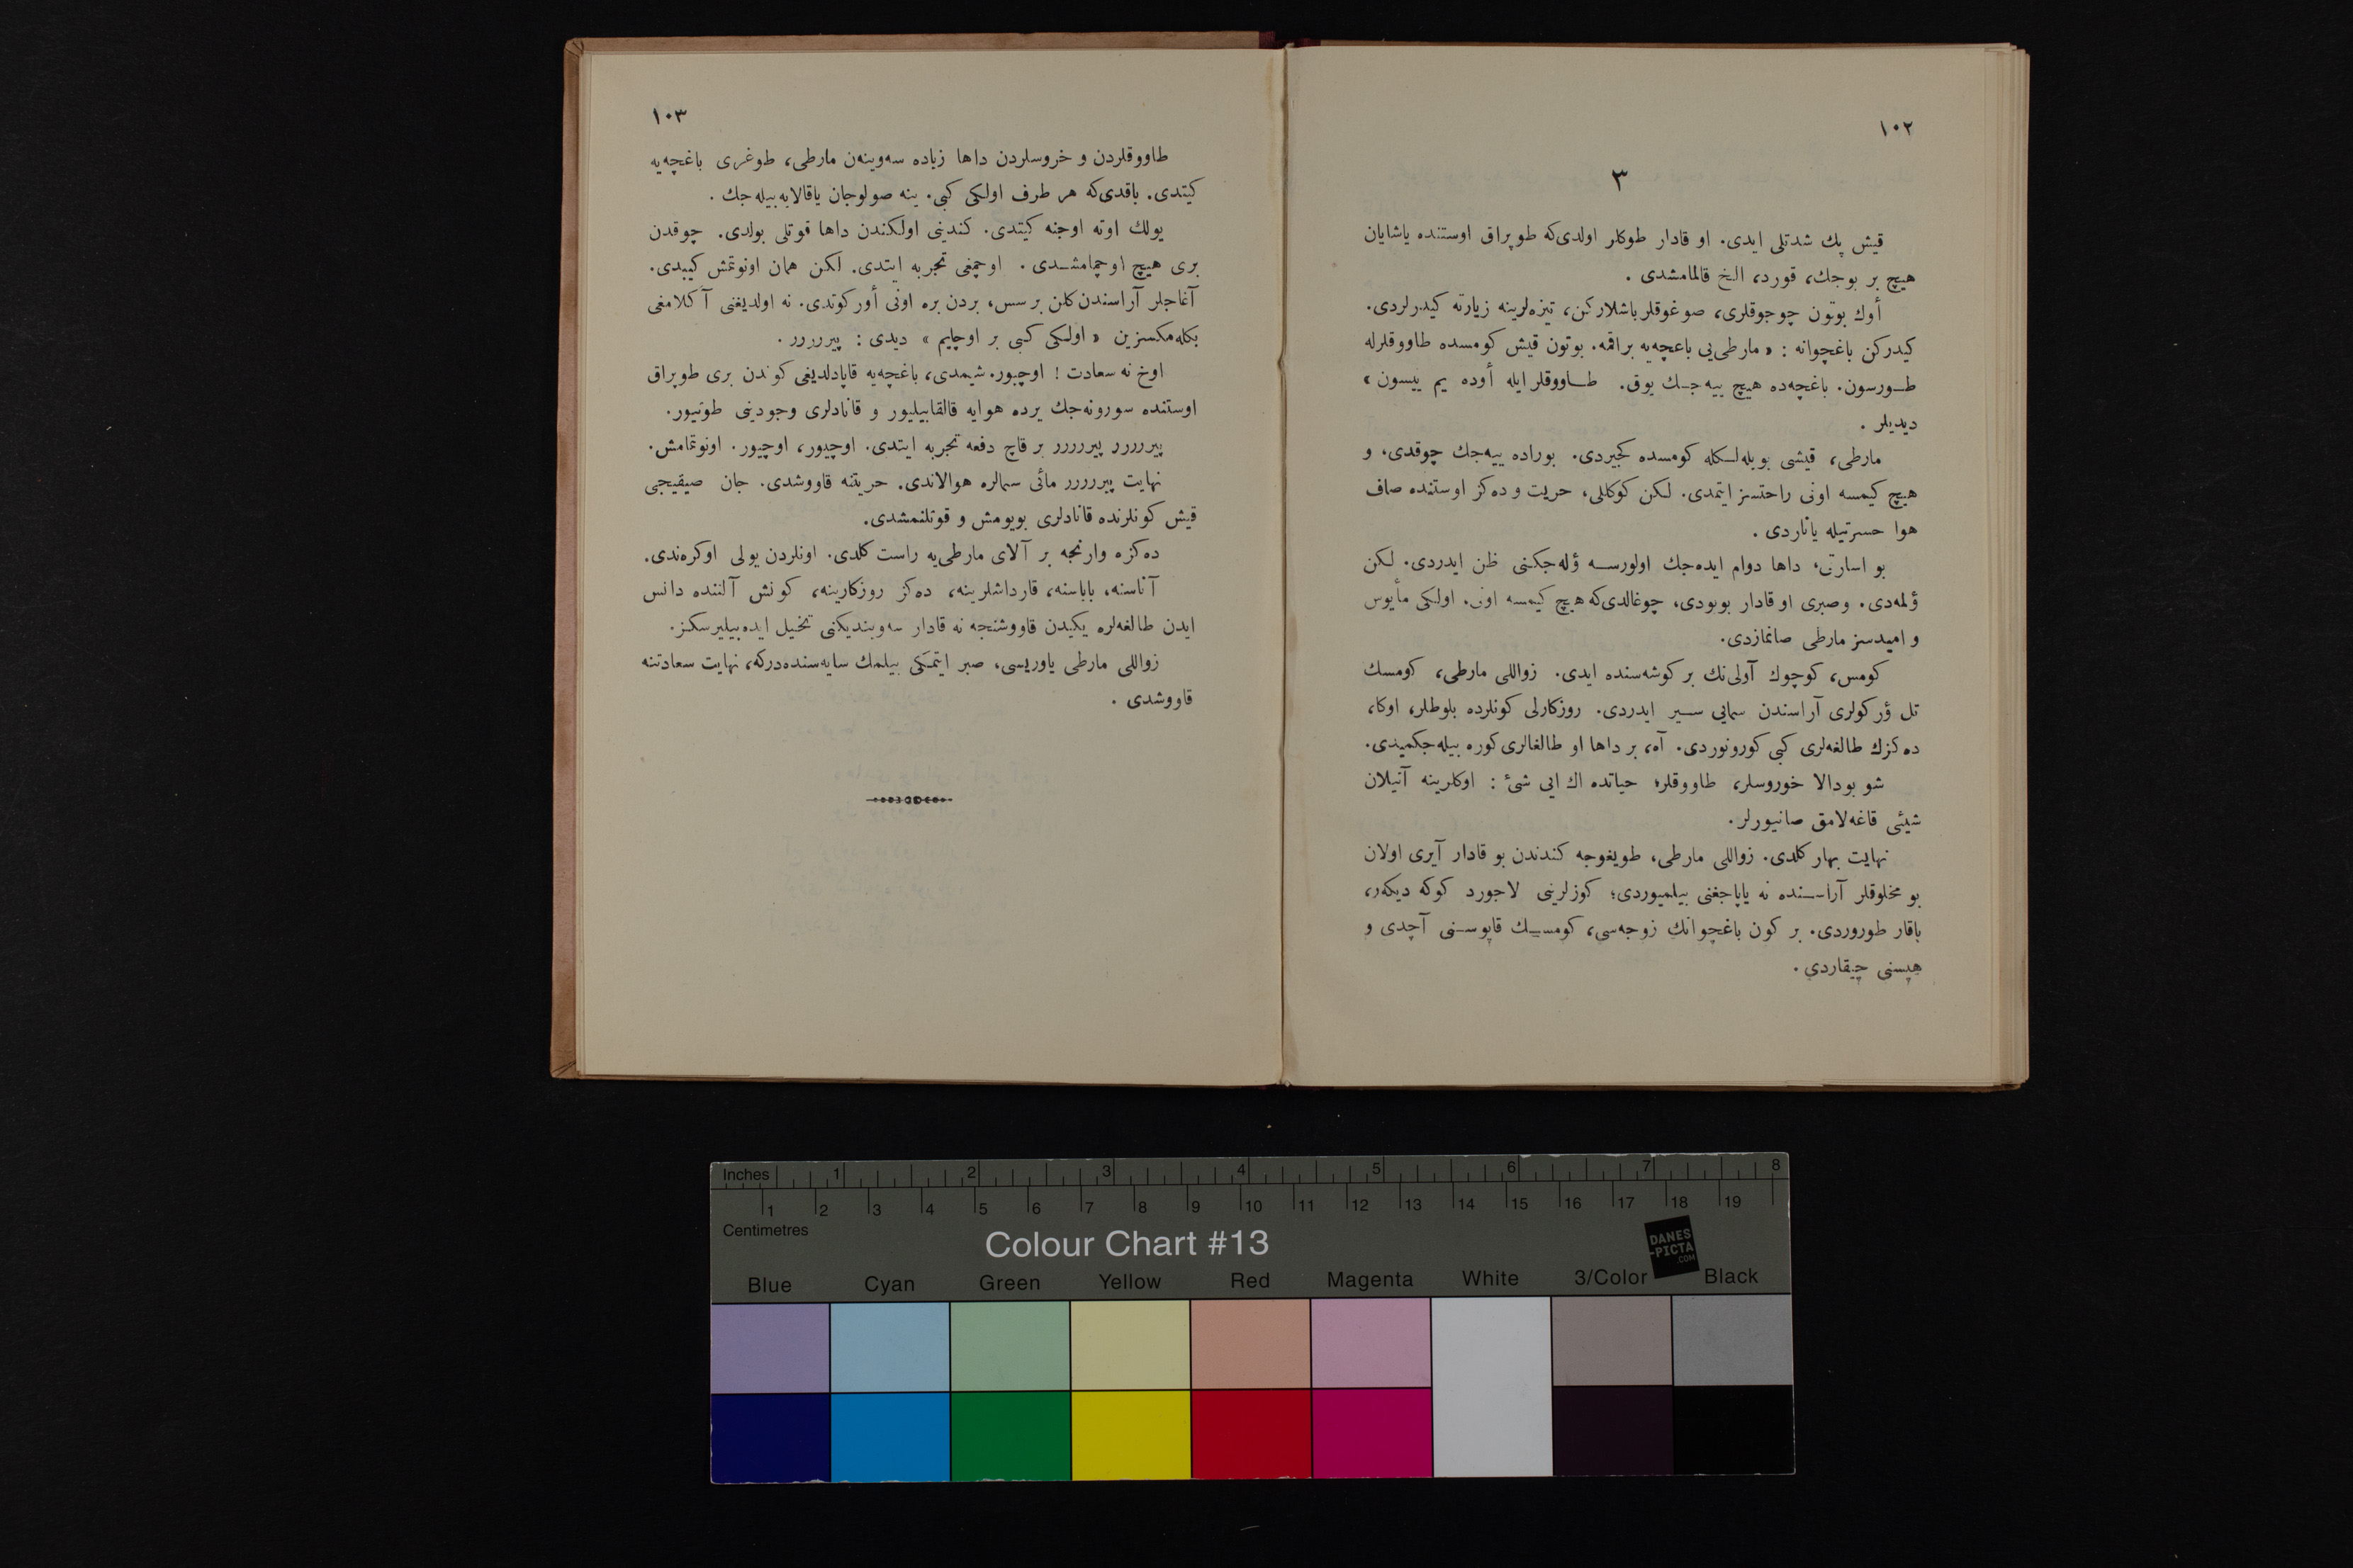 ١٠٢
٣
قیش پك شدتلی ایدی. او قادار طوكلر اولدی‌كه طوپراق اوستنده یاشایان
هیچ بر بوجك، قورد، الخ قالمامشدی .
أوك بوتون چوجوقلری، صوغوقلر باشلاركن، تیزه‌لرینه زیارته كیدرلردی.
كیدركن باغچوانه : « مارطی‌یی باعچه‌یه براقمه. بوتون قیش كومسده طاووقلرله
طورسون. باغچه‌ده هیچ ییه‌جك یوق. طاووقلر ایله أوده یم ییسون »
دیدیلر .
مارطی، قیشی بویله‌لكله كومسده كچیردی. بوراده ییه‌جك چوقدی، و
هیچ كیمسه اونی راحتسز ایتمدی. لكن كوكللی، حریت و ده‌كز اوستنده صاف
هوا حسرتیله یاناردی .
بو اسارتی، داها دوام ایده‌جك اولورسه ؤله‌جكنی ظن ایدردی. لكن
ؤلمه‌دی. وصبری او قادار بویودی، چوغالدی‌كه هیچ كیمسه اونی، اولكی مأیوس
و امیدسز مارطی صانمازدی.
كومس، كوچوك آولی‌نك بر كوشه‌سنده ایدی. زواللی مارطی، كومسك
تل ؤركولری آراسندن سمایی سیر ایدردی. روزكارلی كونلرده بلوطلر، اوكا،
ده‌كزك طالغه‌لری كبی كورونوردی. آه، بر داها او طالغالری كوره بیله‌جكمیدی.
شو بودالا خوروسلر، طاووقلر؛ حیاتده اك ایی شیء : اوكلرینه آتیلان
شیئی قاغه‌لامق صانیورلر.
نهایت بهار كلدی. زواللی مارطی، طویغوجه كندندن بو قادار آیری اولان
بو مخلوقلر آراسنده نه یاپاجغنی بیلمیوردی؛ كوزلرینی لاجورد كوكه دیكه‌ر،
باقار طوروردی. بر كون باغچوانك زوجه‌سی، كومسك قاپوسنی آچدی و
هپسنی چیقاردی .
١٠٣
طاووقلردن و خروسلردن داها زیاده سه‌وینه‌ن مارطی، طوغری باغچه‌یه
كیتدی. باقدی‌كه هر طرف اولكی كبی. ینه صولوجان یاقالایه‌بیله‌جك .
یولك اوته اوجنه كیتدی. كندینی اولكندن داها قوتلی بولدی. چوقدن
بری هیچ اوچمامشدی . اوچمغی تجربه ایتدی. لكن همان اونوتمش كیبدی.
آغاجلر آراسندن كلن بر سس، بردن بره اونی أوركوتدی. نه اولدیغنی آكلامغی
بكله‌مكسزین « اولكی كبی بر اوچایم » دیدی : پیررررر .
اوخ نه سعادت ! اوچیور. شیمدی، باغچه‌یه قاپادلدیغی كوندن بری طوپراق
اوستنده سورونه‌جك یرده هوایه قالقابیلیور و قانادلری وجودینی طوتیور.
پیررررر پیررررر بر قاچ دفعه تجربه ایتدی. اوچیور، اوچیور. اونوتمامش.
نهایت پیررررر مائی سمالره هوالاندی. حریتنه قاووشدی. جان صیقیجی
قیش كونلرنده قانادلری بویومش و قوتلنمشدی.
ده‌كزه وارنجه بر آلای مارطی‌یه راست كلدی. اونلردن یولی اوكره‌ندی.
آناسنه، باباسنه، قارداشلرینه، ده‌كز روزكارینه، كونش آلتنده دانس
ایدن طالغه‌لره یكیدن قاووشنجه نه قادار سه‌وینديكنی تخیل ایده‌بیلیرسكز.
زواللی مارطی یاوریسی، صبر ایتمكی بیلمك سایه‌سنده‌دركه، نهایت سعادتنه
قاووشدی .
Inches 1 2 3 4 5 6 7 8
1 2 3 4 5 6 7 8 9 10 11 12 13 14 15 16 17 18 19
Centimetres
Colour Chart #13
DANES
-PICTA
.COM
Blue Cyan Green Yellow Red Magenta White 3/Color Black